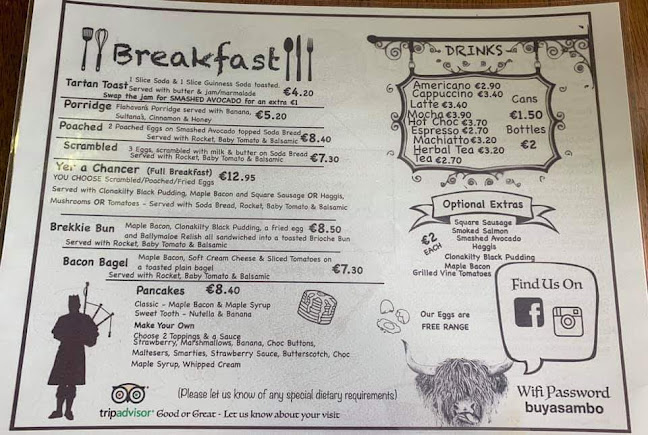 Breakfast
Tartan Toast 1 Slice Soda & 1 Slice Guinness Soda toasted.
Served with butter & jam/marmalade €4.20
Swap the jam for SMASHED AVOCADO for an extra €1
Porridge Flahavan's Porridge served with Banana,
Sultana's, Cinnamon & Honey €5.20
Poached 2 Poached Eggs on Smashed Avocado topped Soda Bread
Served with Rocket, Baby Tomato & Balsamic €8.40
Scrambled 3 Eggs, scrambled with milk & butter on Soda Bread
Served with Rocket, Baby Tomato & Balsamic €7.30
Yer a Chancer (Full Breakfast) €12.95
YOU CHOOSE Scrambled/Poached/Fried Eggs
Served with Clonakilty Black Pudding, Maple Bacon and Square Sausage OR Haggis,
Mushrooms OR Tomatoes - Served with Soda Bread, Rocket, Baby Tomato & Balsamic
Brekkie Bun Maple Bacon, Clonakilty Black Pudding, a fried egg €8.50
and Ballymaloe Relish all sandwiched into a toasted Brioche Bun
Served with Rocket, Baby Tomato & Balsamic
Bacon Bagel Maple Bacon, Soft Cream Cheese & Sliced Tomatoes on
a toasted plain bagel €7.30
Served with Rocket, Baby Tomato & Balsamic
Pancakes €8.40
Classic - Maple Bacon & Maple Syrup
Sweet Tooth - Nutella & Banana
Make Your Own
Choose 2 Toppings & a Sauce
Strawberry, Marshmallows, Banana, Choc Buttons,
Maltesers, Smarties, Strawberry Sauce, Butterscotch, Choc
Maple Syrup, Whipped Cream
(Please let us know of any special dietary requirements)
tripadvisor Good or Great - Let us know about your visit
DRINKS
Americano €2.90
Cappuccino €3.40
Latte €3.40
Mocha €3.90
Hot Choc €3.70
Espresso €2.70
Machiatto €3.20
Herbal Tea €3.20
Tea €2.70
Cans
€1.50
Bottles
€2
Optional Extras
€2
EACH
Square Sausage
Smoked Salmon
Smashed Avocado
Haggis
Clonakilty Black Pudding
Maple Bacon
Grilled Vine Tomatoes
Our Eggs are
FREE RANGE
Find Us On
f
Wifi Password
buyasambo